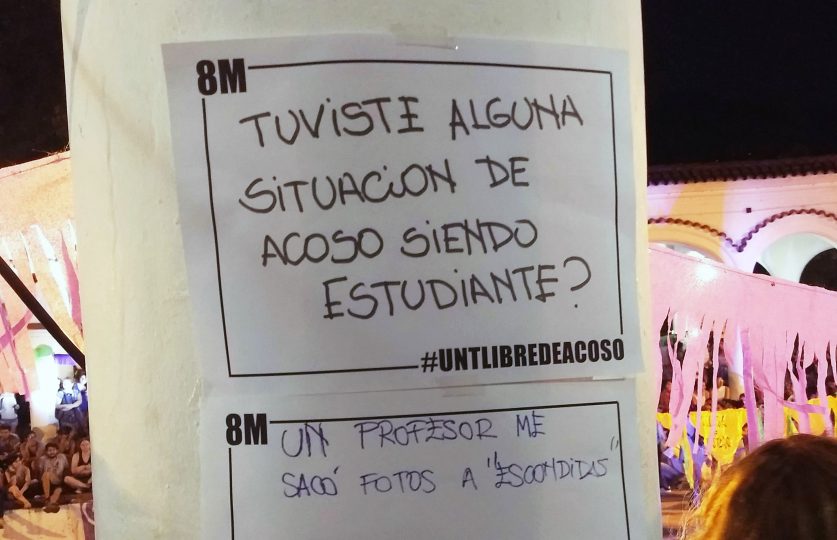 8M
TUVISTE ALGUNA
SITUACION DE
ACOSO SIENDO
ESTUDIANTE?
#UNTLIBREDEACOSO
8M
UN PROFESOR ME
SACÓ FOTOS A "ESCONDIDAS"